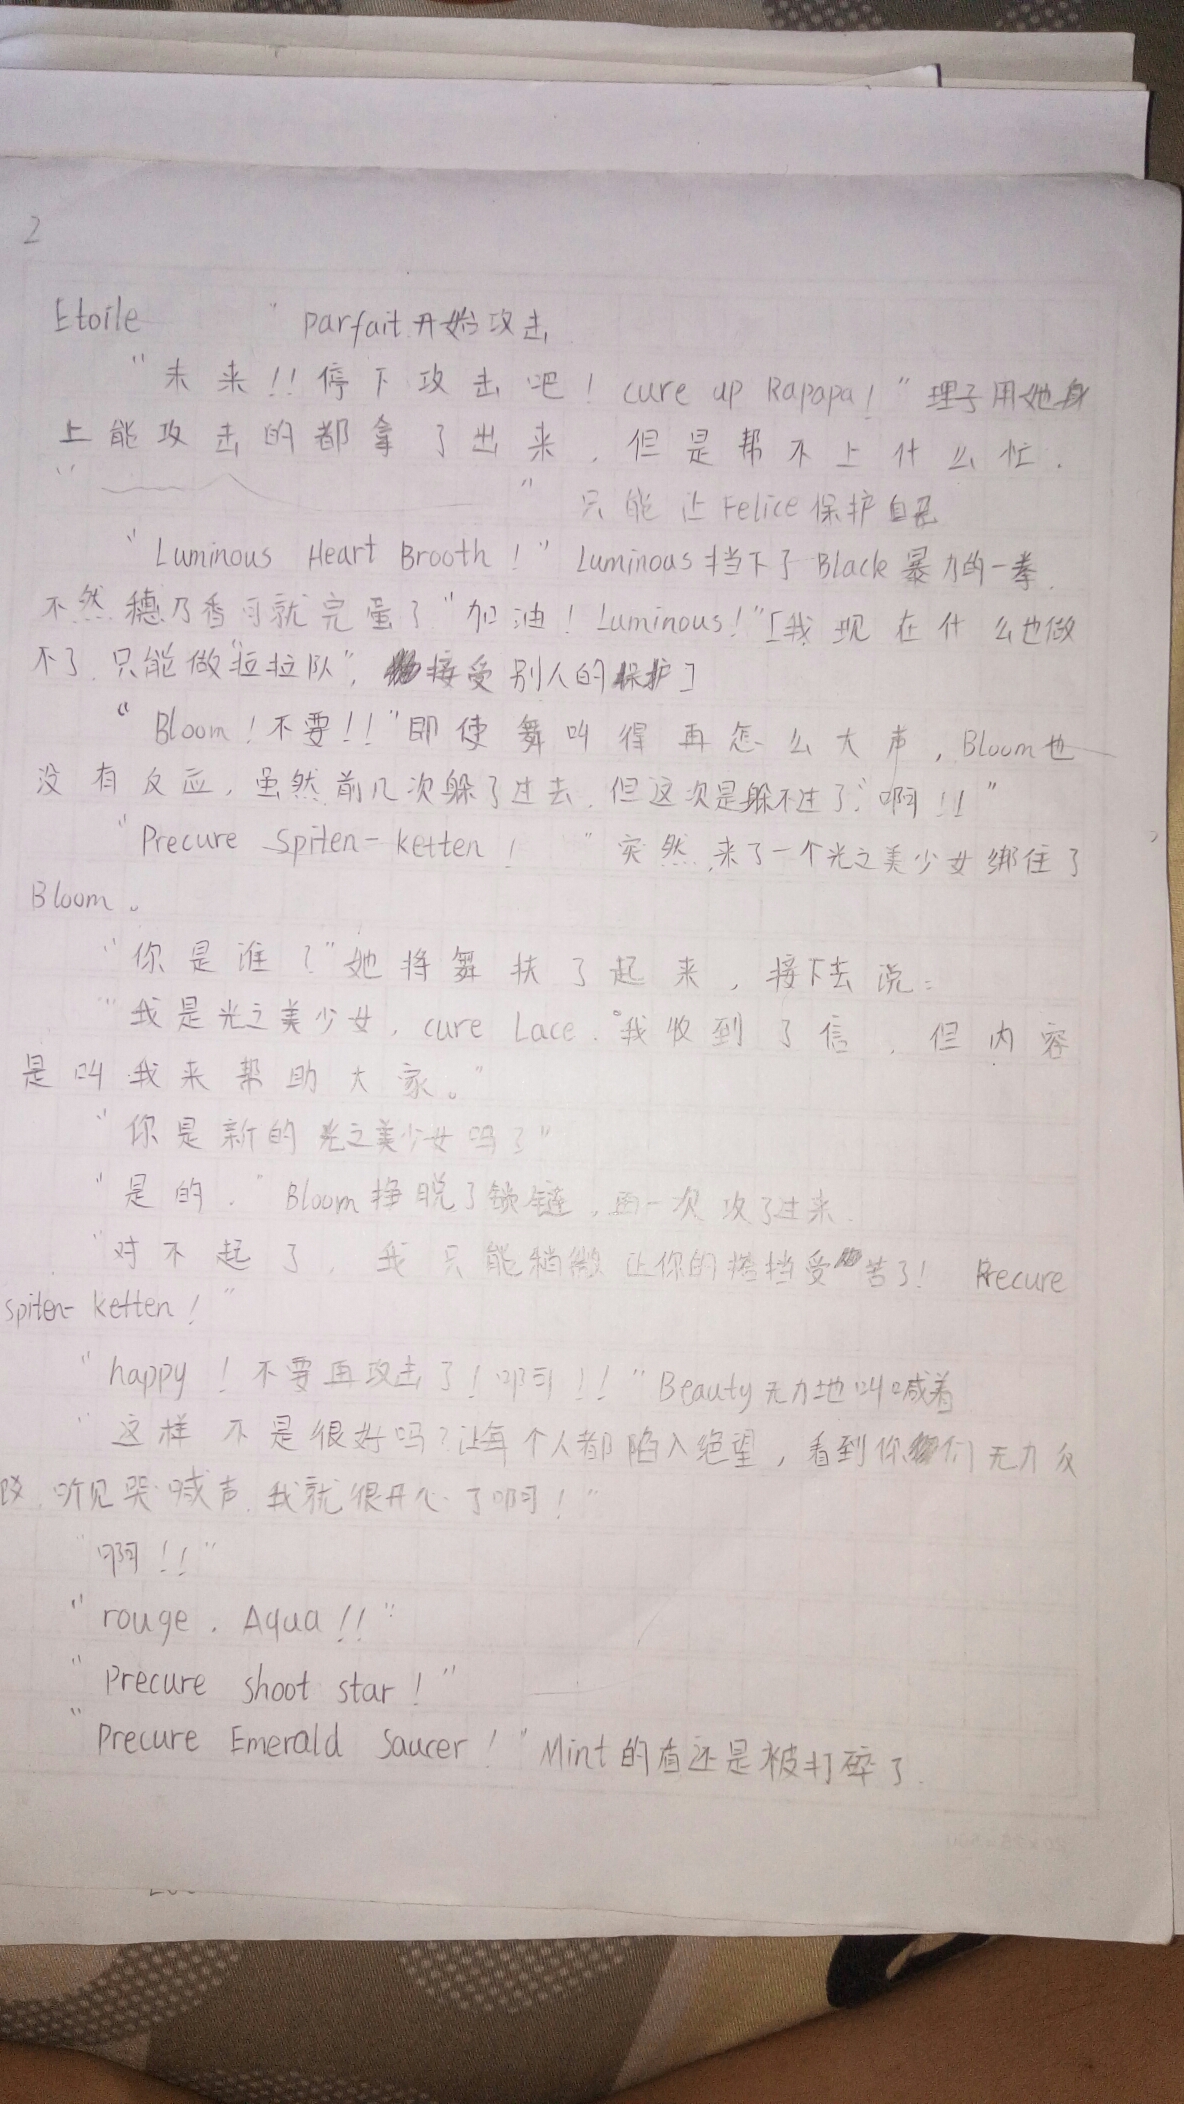 2
Etoile " parfait开始攻击
"未来!!停下攻击吧!cure up Rapapa!"理子用她身
上能攻击的都拿了出来,但是帮不上什么忙.
" "只能让Felice保护自己
"Luminous Heart Brooth!"Luminous挡下了Black暴力的一拳.
不然穗乃香可就完蛋了"加油!Luminous!"[我现在什么也做
不了.只能做"拉拉队",接受别人的保护]
"Bloom!不要!!"即使舞叫得再怎么大声,Bloom也
没有反应,虽然前几次躲了过去.但这次是躲不过了."啊!!"
"Precure Spiten-ketten! "突然,来了一个光之美少女绑住了
Bloom。
"你是谁?"她将舞扶了起来,接下去说:
"我是光之美少女,cure Lace."我收到了信,但内容
是叫我来帮助大家。"
"你是新的光之美少女吗?"
"是的."Bloom挣脱了锁链,再一次攻了过来.
"对不起了,我只能稍微让你的搭挡受苦了! Precure
spiten-ketten!"
"happy!不要再攻击了!啊!!"Beauty无力地叫喊着
"这样不是很好吗?让每个人都陷入绝望,看到你们无力反
,听见哭喊声.我就很开心了啊!"
"啊!!"
"rouge.Aqua!!"
"Precure shoot star!"
"Precure Emerald Saucer!"Mint的盾还是被打碎了.